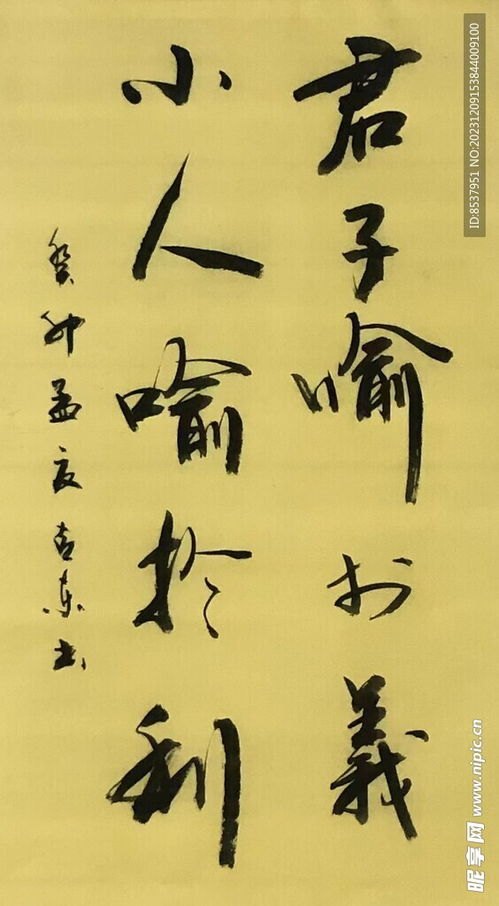 君子喻於義
小人喻於利
癸卯孟夏吉东书
ID:8537951 NO:20231209153844009100
昵享网 www.nipic.cn